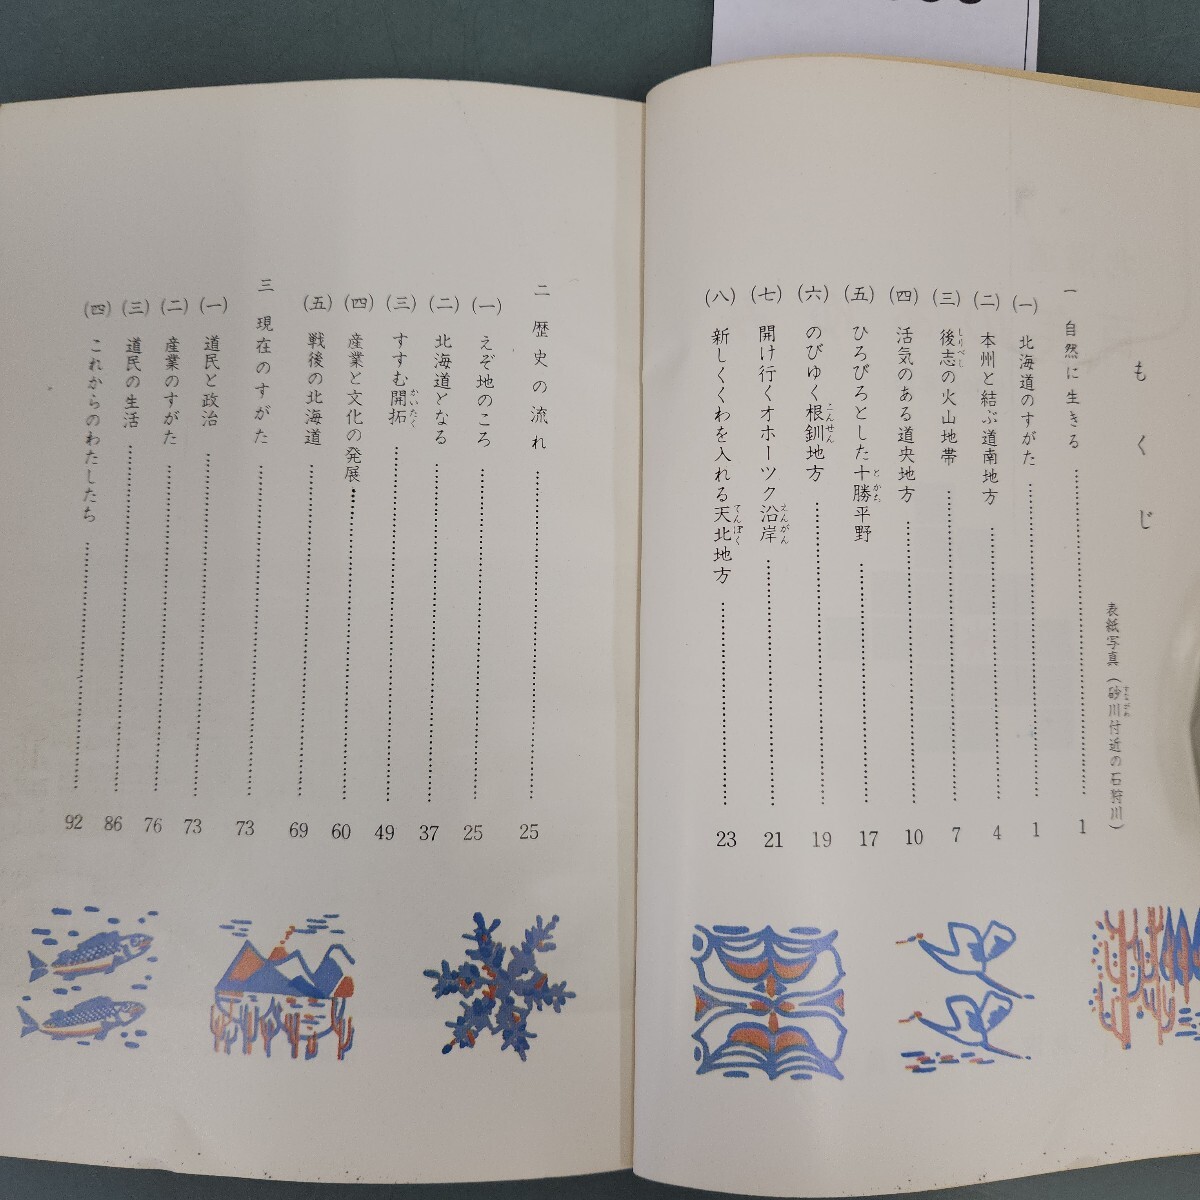 もくじ
表紙写真(砂川付近の石狩川)
一 自然に生きる 1
(一) 北海道のすがた 1
(二) 本州と結ぶ道南地方 4
(三) 後志の火山地帯 7
しりべし
(四) 活気のある道央地方 10
(五) ひろびろとした十勝平野 17
とかち
(六) のびゆく根釧地方 19
こんせん
(七) 開け行くオホーツク沿岸 21
えんがん
(八) 新しくくわを入れる天北地方 23
てんぽく
二 歴史の流れ 25
(一) えぞ地のころ 25
(二) 北海道となる 37
(三) すすむ開拓 49
かいたく
(四) 産業と文化の発展 60
(五) 戦後の北海道 69
三 現在のすがた 73
(一) 道民と政治 73
(二) 産業のすがた 76
(三) 道民の生活 86
(四) これからのわたしたち 92